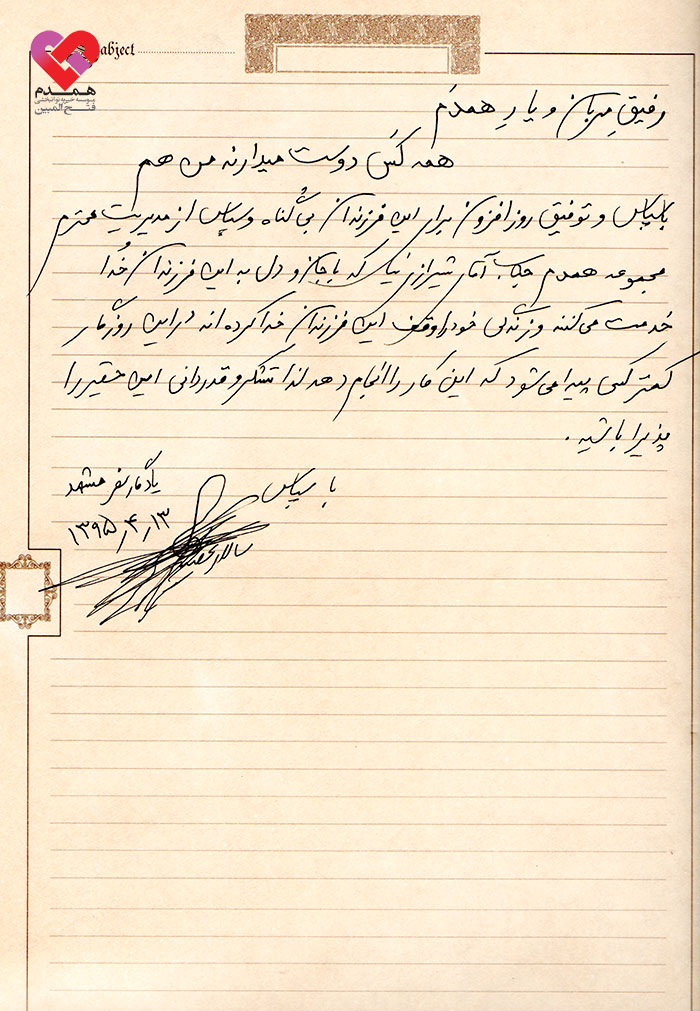 Subject
همدم
موسسه خیریه توانبخشی
فتح المبین
رفیقِ مهربان و یارِ همدَم
همه کَس دوست میدارند من هم
با سپاس و توفیق روز افزون برای این فرزندان بی گناه و سپاس از مدیریت محترم
مجموعه همدم جناب آقای شیرازی نیا که با جان و دل به این فرزندان خُدا
خدمت می کنند و زندگی خود را وقف این فرزندان خدا کرده اند در این روزگار
کمتر کسی پیدا می شود که این کار را انجام دهد لذا تشکر و قدردانی این حقیر را
پذیرا باشید.
با سپاس
یادگار سفر مشهد
۱۳۹۵٫۴٫۱۳
سالار